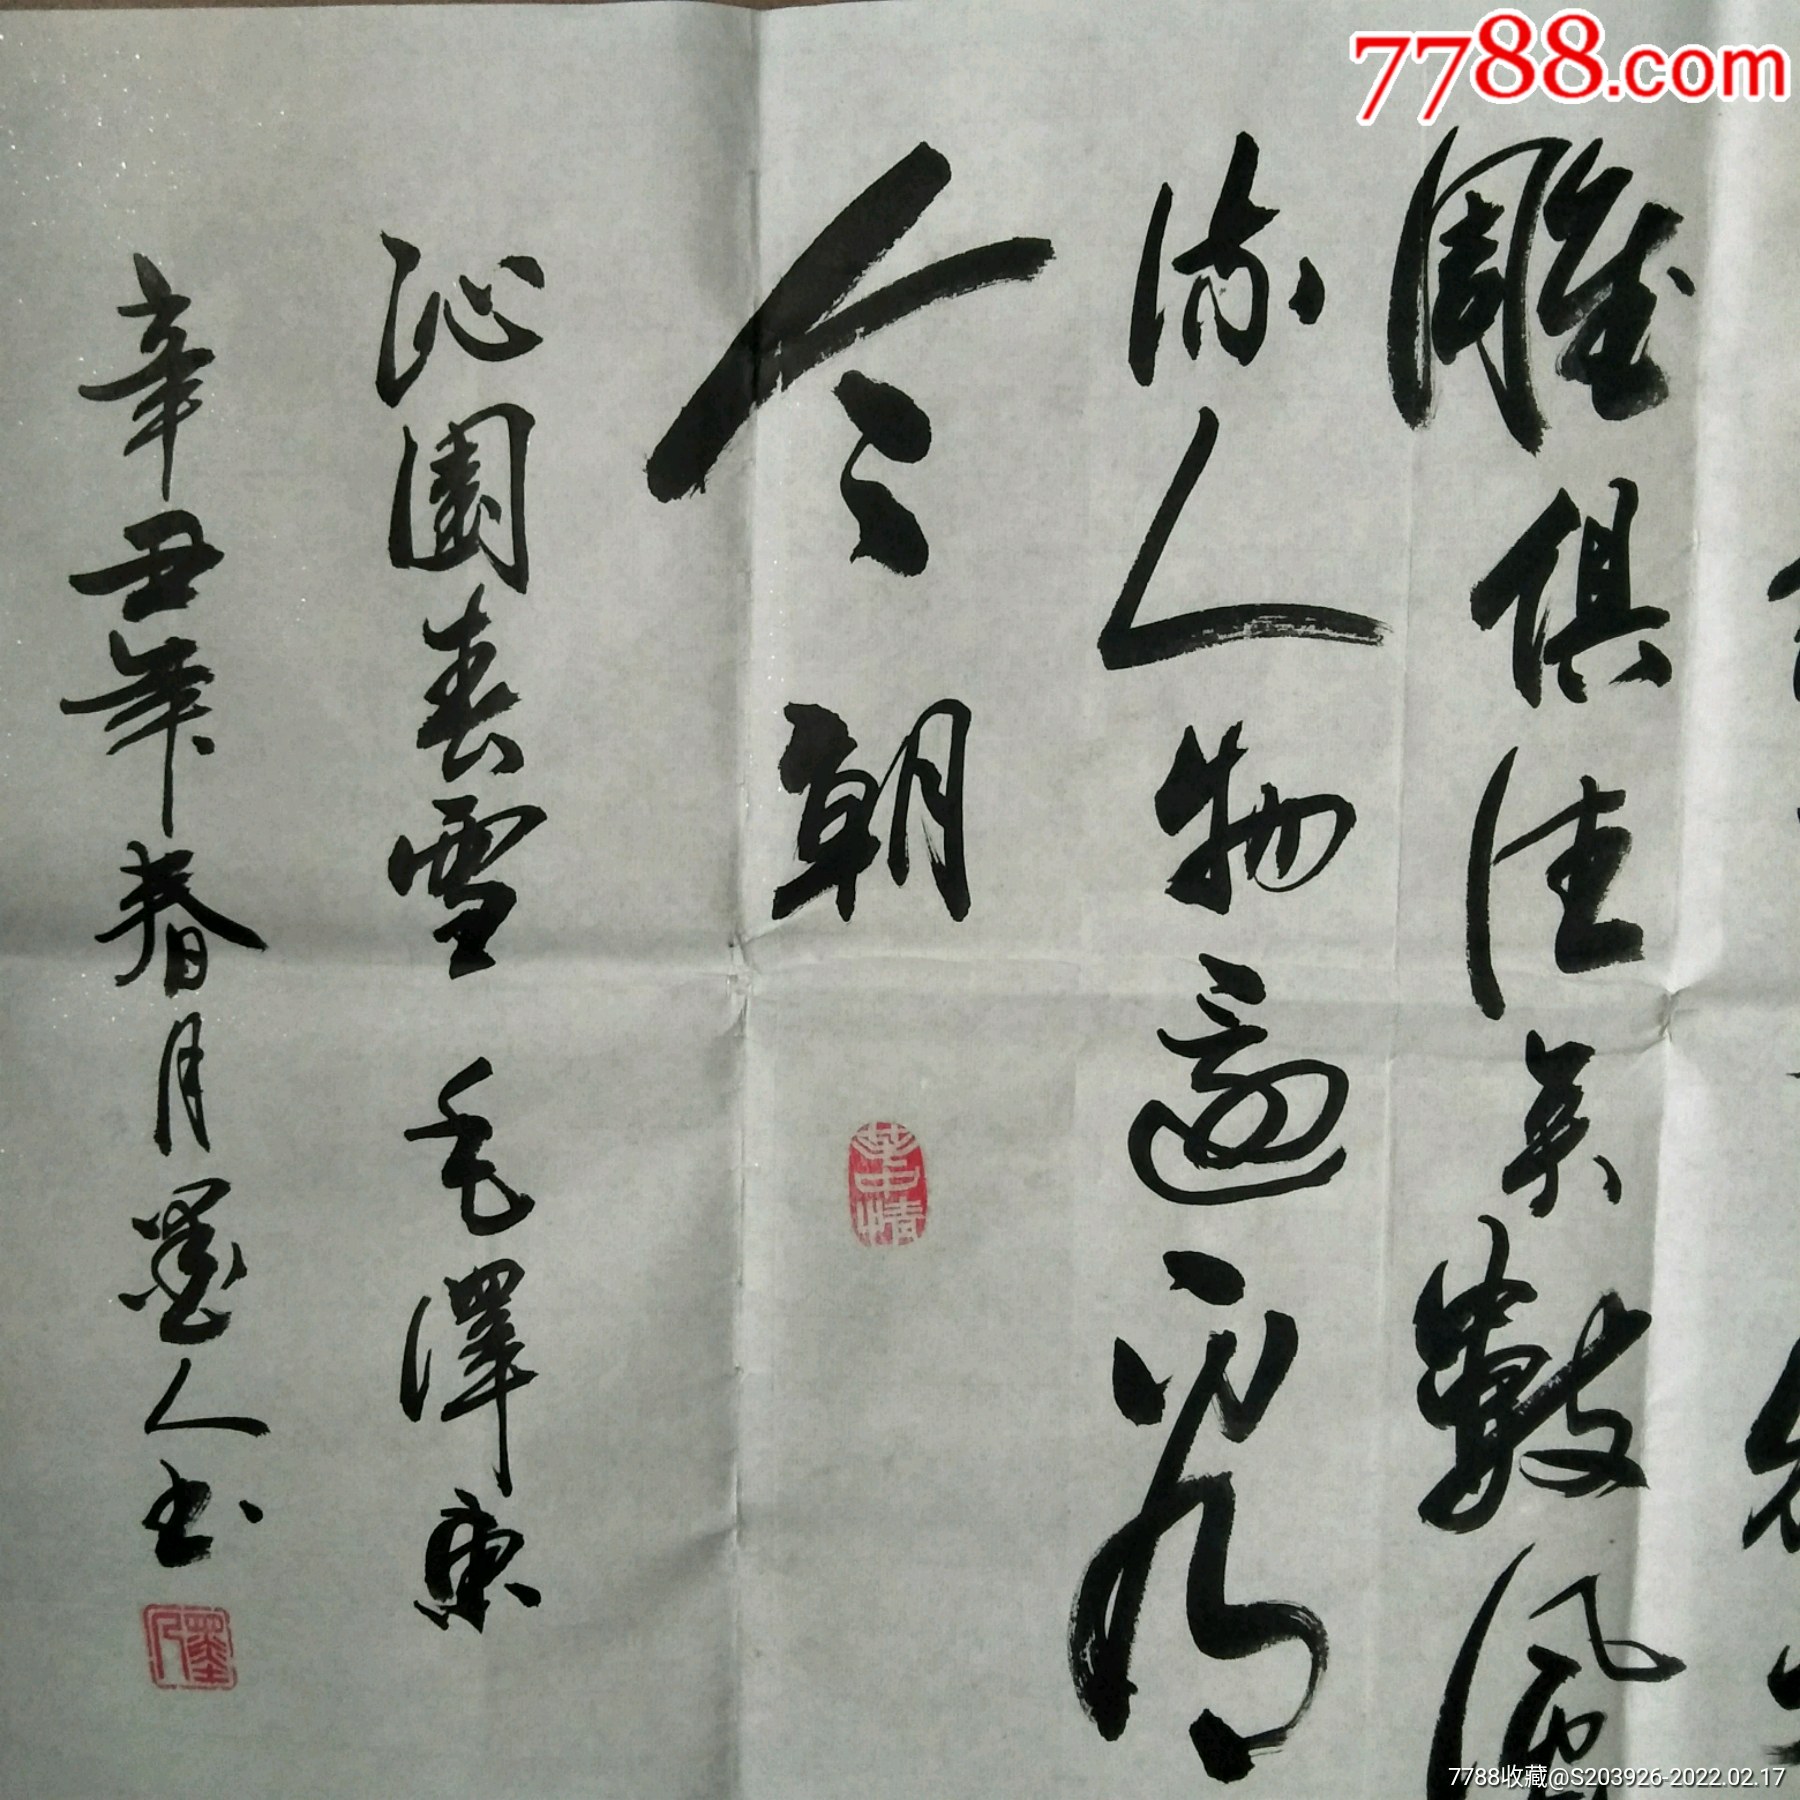 7788.com
雕俱往矣數風
流人物還看
今朝
沁園春雪 毛澤東
辛丑年春月墨人书
墨人
7788收藏@S203926-2022.02.17